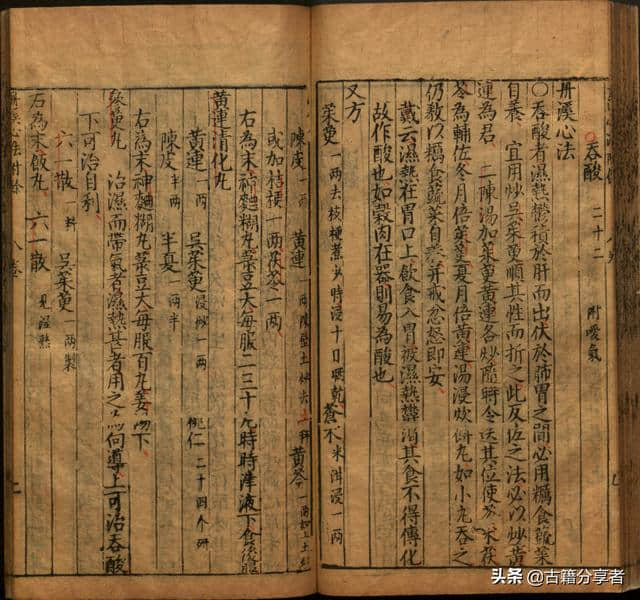 吞酸 二十二 附噯氣
丹溪心法
○吞酸者濕熱鬱積於肝而出伏於肺胃之間必用糲食蔬菜
自養 宜用炒吳茱萸順其性而折之此反佐之法必以炒黃
連為君 二陳湯加茱萸黃連各炒隨時令迭其位使蒼朮茯
苓為輔佐冬月倍茱萸夏月倍黃連湯浸炊餅丸如小丸吞之
仍教以糲食蔬菜自養并戒忿怒即安
戴云濕熱在胃口上飲食入胃被濕熱鬱遏其食不得傳化
故作酸也如穀肉在器則易為酸也
又方
茱萸 一兩去核梗煮少時浸十日晒乾 蒼朮 米泔浸一兩
陳皮 一兩 黃連 一兩陳壁土炒去土秤 黃芩 一兩如上土炒
或加桔梗一兩茯苓一兩
右為末神麯糊丸菉豆大每服二三十丸時時津液下食後服
黃連清化丸
黃連 一兩 吳茱萸 浸炒一兩 桃仁 二十四个研
陳皮 半兩 半夏 一兩半
右為末神麯糊丸菉豆大每服百丸姜湯下
茱萸丸 治濕而帶氣者濕熱甚者用之為向導上可治吞酸
下可治自利
六一散 一料 吳茱萸 一兩製
右為末飯丸 六一散 見濕熱
八卷